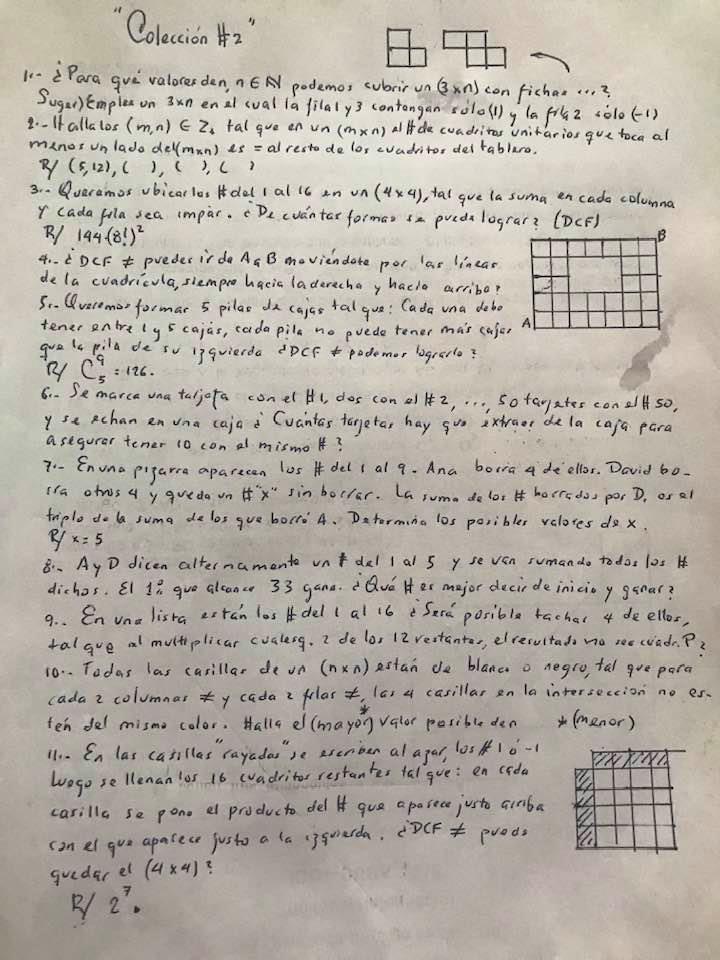 "Colección #2"
1.- ¿Para qué valores de n, n ∈ N podemos cubrir un (3xn) con fichas ...?
Suger) Emplea un 3xn en el cual la fila 1 y 3 contengan sólo (1) y la fila 2 sólo (-1)
2.- Halla los (m,n) ∈ Z+ tal que en un (mxn) el # de cuadritos unitarios que toca al
menos un lado del (mxn) es = al resto de los cuadritos del tablero.
R/ (5,12), ( ), ( ), ( )
3.- Queremos ubicar los # del 1 al 16 en un (4x4), tal que la suma en cada columna
y cada fila sea impar. ¿De cuántas formas se puede lograr? (DCF)
R/ 144·(8!)²
B
4.- ¿DCF ≠ puedes ir de A a B moviéndote por las líneas
de la cuadrícula, siempre hacia la derecha y hacia arriba?
5.- Queremos formar 5 pilas de cajas tal que: Cada una debe
tener entre 1 y 5 cajas, cada pila no puede tener más cajas
A
que la pila de su izquierda ¿DCF ≠ podemos lograrlo?
R/ C⁹₅ = 126.
6.- Se marca una tarjeta con el #1, dos con el #2, ..., 50 tarjetas con el #50,
y se echan en una caja ¿Cuántas tarjetas hay que extraer de la caja para
asegurar tener 10 con el mismo #?
7.- En una pizarra aparecen los # del 1 al 9. Ana borra 4 de ellos. David bo-
rra otros 4 y queda un # "x" sin borrar. La suma de los # borrados por D, es el
triplo de la suma de los que borró A. Determina los posibles valores de x.
R/ x=5
8.- A y D dicen alternamente un # del 1 al 5 y se van sumando todos los #
dichos. El 1º que alcance 33 gana. ¿Qué # es mejor decir de inicio y ganar?
9.- En una lista están los # del 1 al 16 ¿Será posible tachar 4 de ellos,
tal que al multiplicar cualesq. 2 de los 12 restantes, el resultado no sea cuadr. P?
10.- Todas las casillas de un (nxn) están de blanco o negro, tal que para
cada 2 columnas ≠ y cada 2 filas ≠, las 4 casillas en la intersección no es-
tén del mismo color. Halla el (mayor)* valor posible de n *(menor)
11.- En las casillas "rayadas" se escriben al azar, los # 1 ó -1
Luego se llenan los 16 cuadritos restantes tal que: en cada
casilla se pone el producto del # que aparece justo arriba
con el que aparece justo a la izquierda. ¿DCF ≠ puede
quedar el (4x4)?
R/ 2⁷.